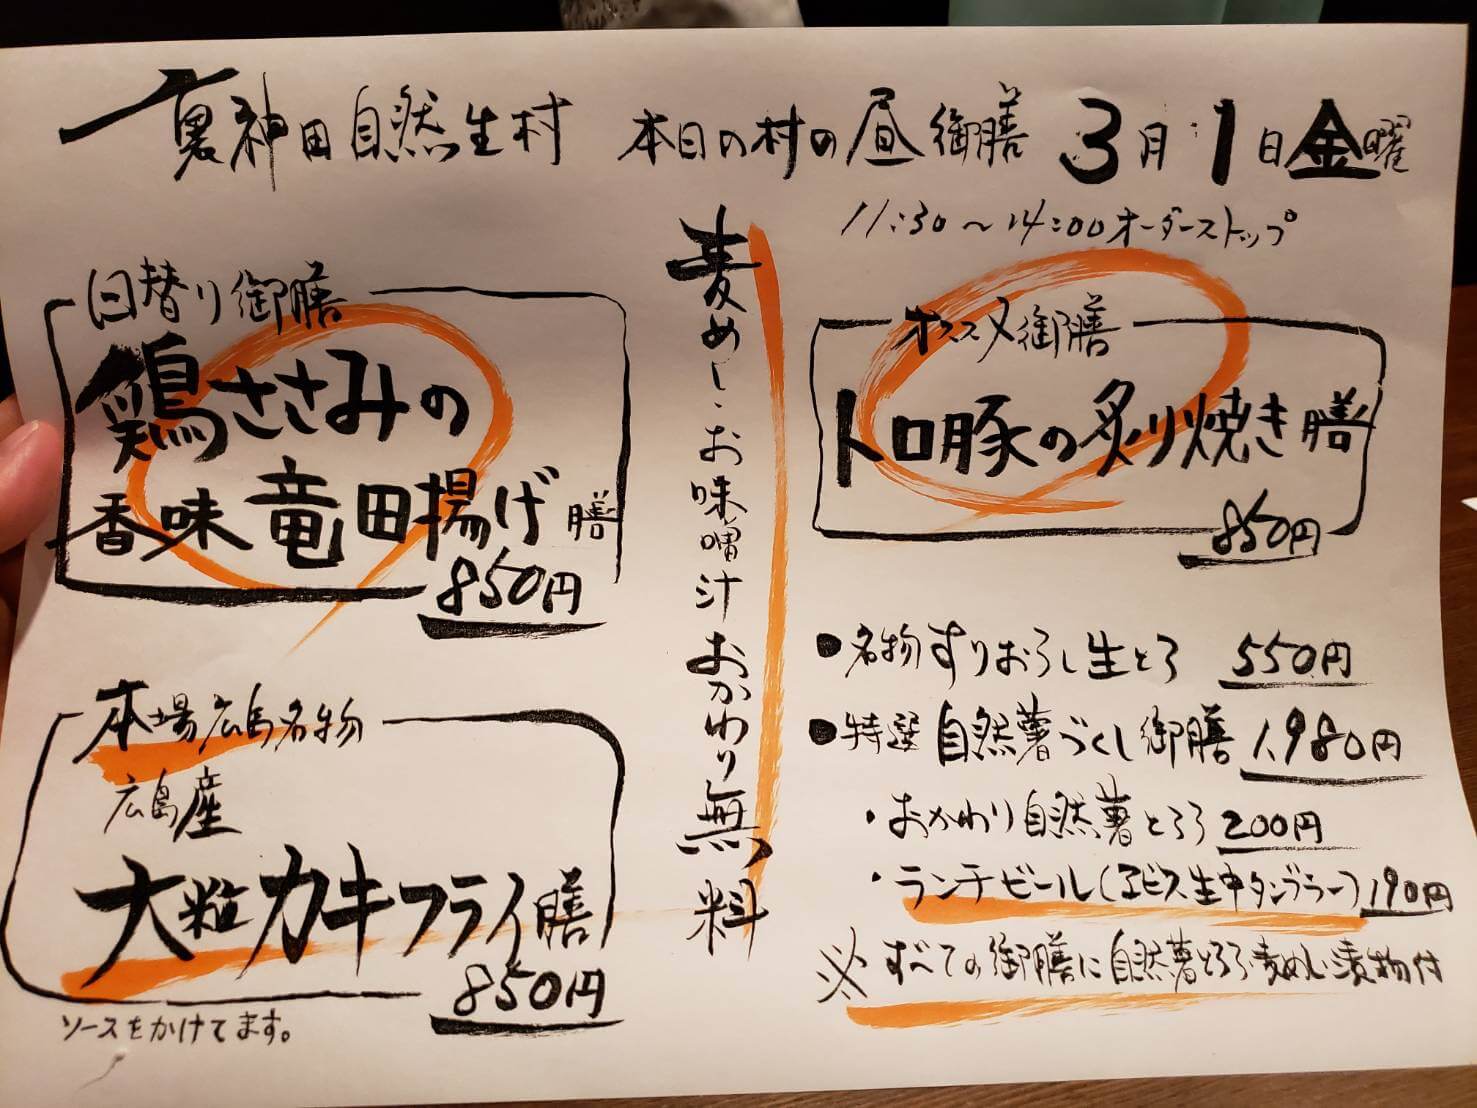 裏神田自然生村 本日の村の昼御膳 3月1日金曜
11:30~14:00オーダーストップ
日替り御膳
鶏ささみの
香味竜田揚げ膳
850円
本場広島名物
広島産
大粒カキフライ膳
850円
ソースをかけてます。
麦めし・お味噌汁おかわり無料
オススメ御膳
トロ豚の炙り焼き膳
850円
●名物すりおろし生とろ 550円
●特選自然薯づくし御膳 1,980円
・おかわり自然薯とろろ 200円
・ランチビール(ヱビス生中タンブラー)190円
※すべての御膳に自然薯とろろ・麦めし・漬物付